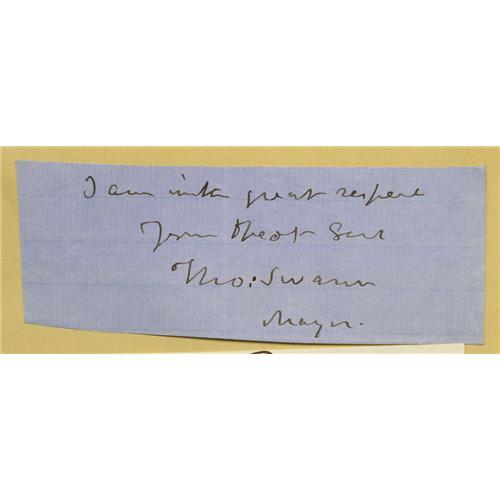 I am with great respect
Your Obedt Servt
Tho: Swann
Mayor.